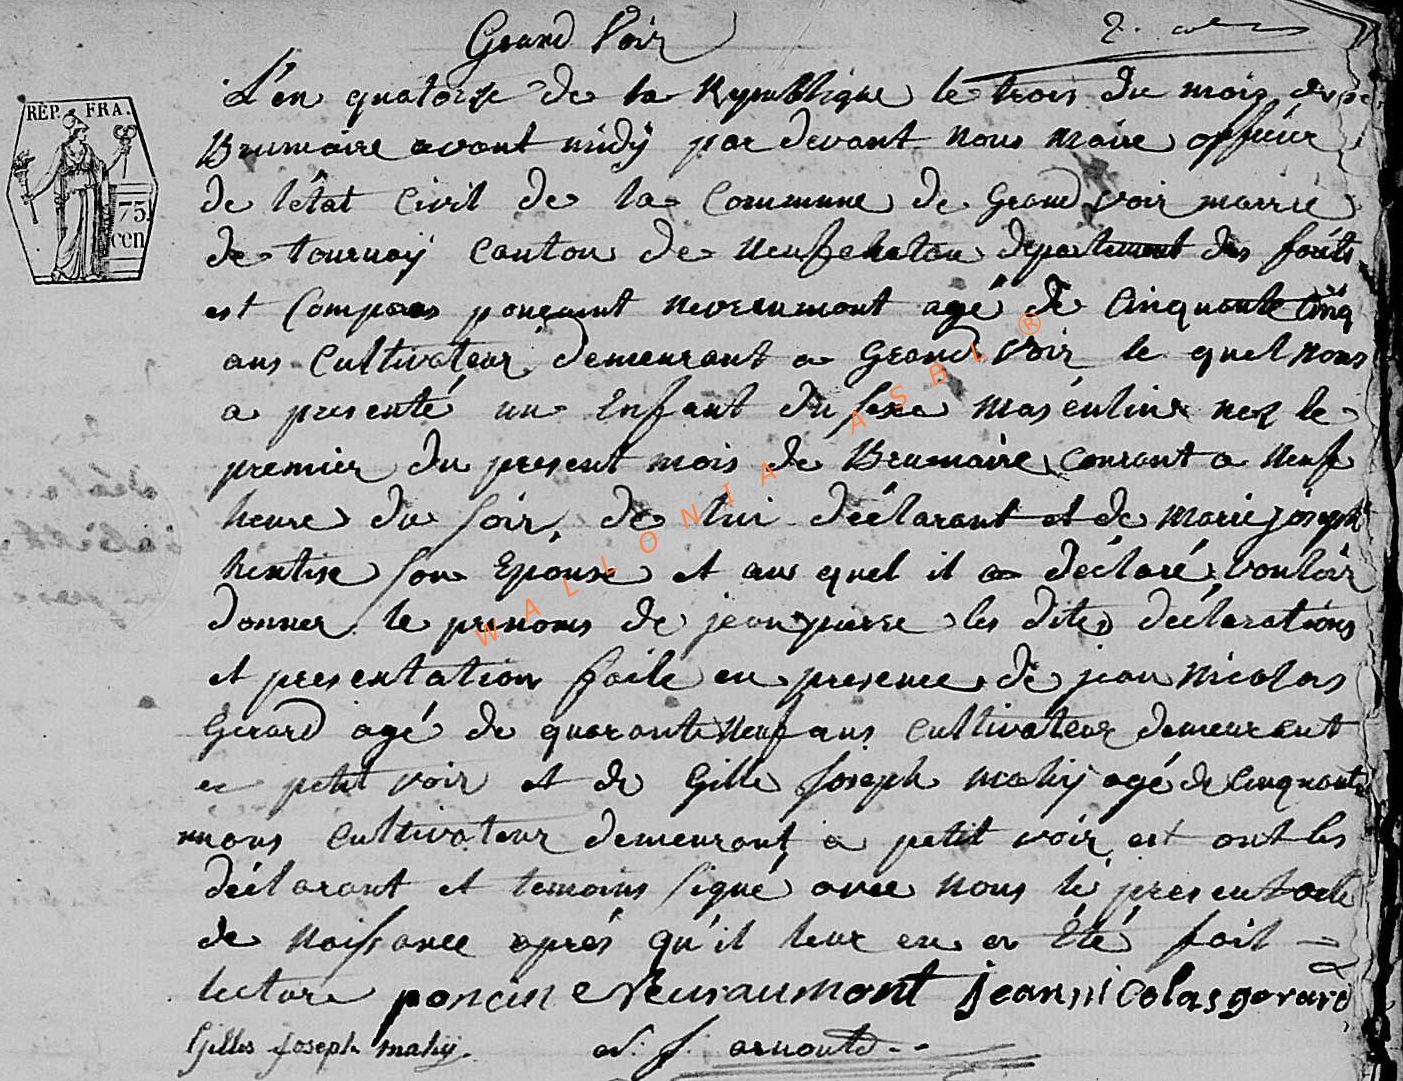 Grand Voir
L'en quatorze de la Republique le trois du mois de
Brumaire avant midÿ par devant nous maire officier
de létat Civil de la Commune de Grand voir mairie
de tournaÿ canton de neufchateau departement des forêts
est Comparus poncint nevreumont agé de Cinquante Cinq
ans Cultivateur demeurant a Grand Voir le quel nous
a presenté un Enfant du sexe masculin nez le
premier du present mois de Brumaire courant a neuf
heure du soir de lui déclarant et de marie joseph
hentise son Epouse et au quel il a déclaré vouloir
donner le prenoms de jean pierre les dites déclarations
et presentation faite en presence de jean nicolas
Gerard agé de quarante neuf ans cultivateur demeurant
a petit voir et de Gille Joseph mahÿ agé de Cinquante
ans cultivateur demeurant a petit voir et ont les
déclarant et temoins signé avec nous le present acte
de naissance aprés qu'il leur en a été fait
lecture poncin neuraumont jean nicolas gerard
Gilles joseph mahÿ. arnould
REP. FRA.
75.
cen
WALLONIA ASBL ®